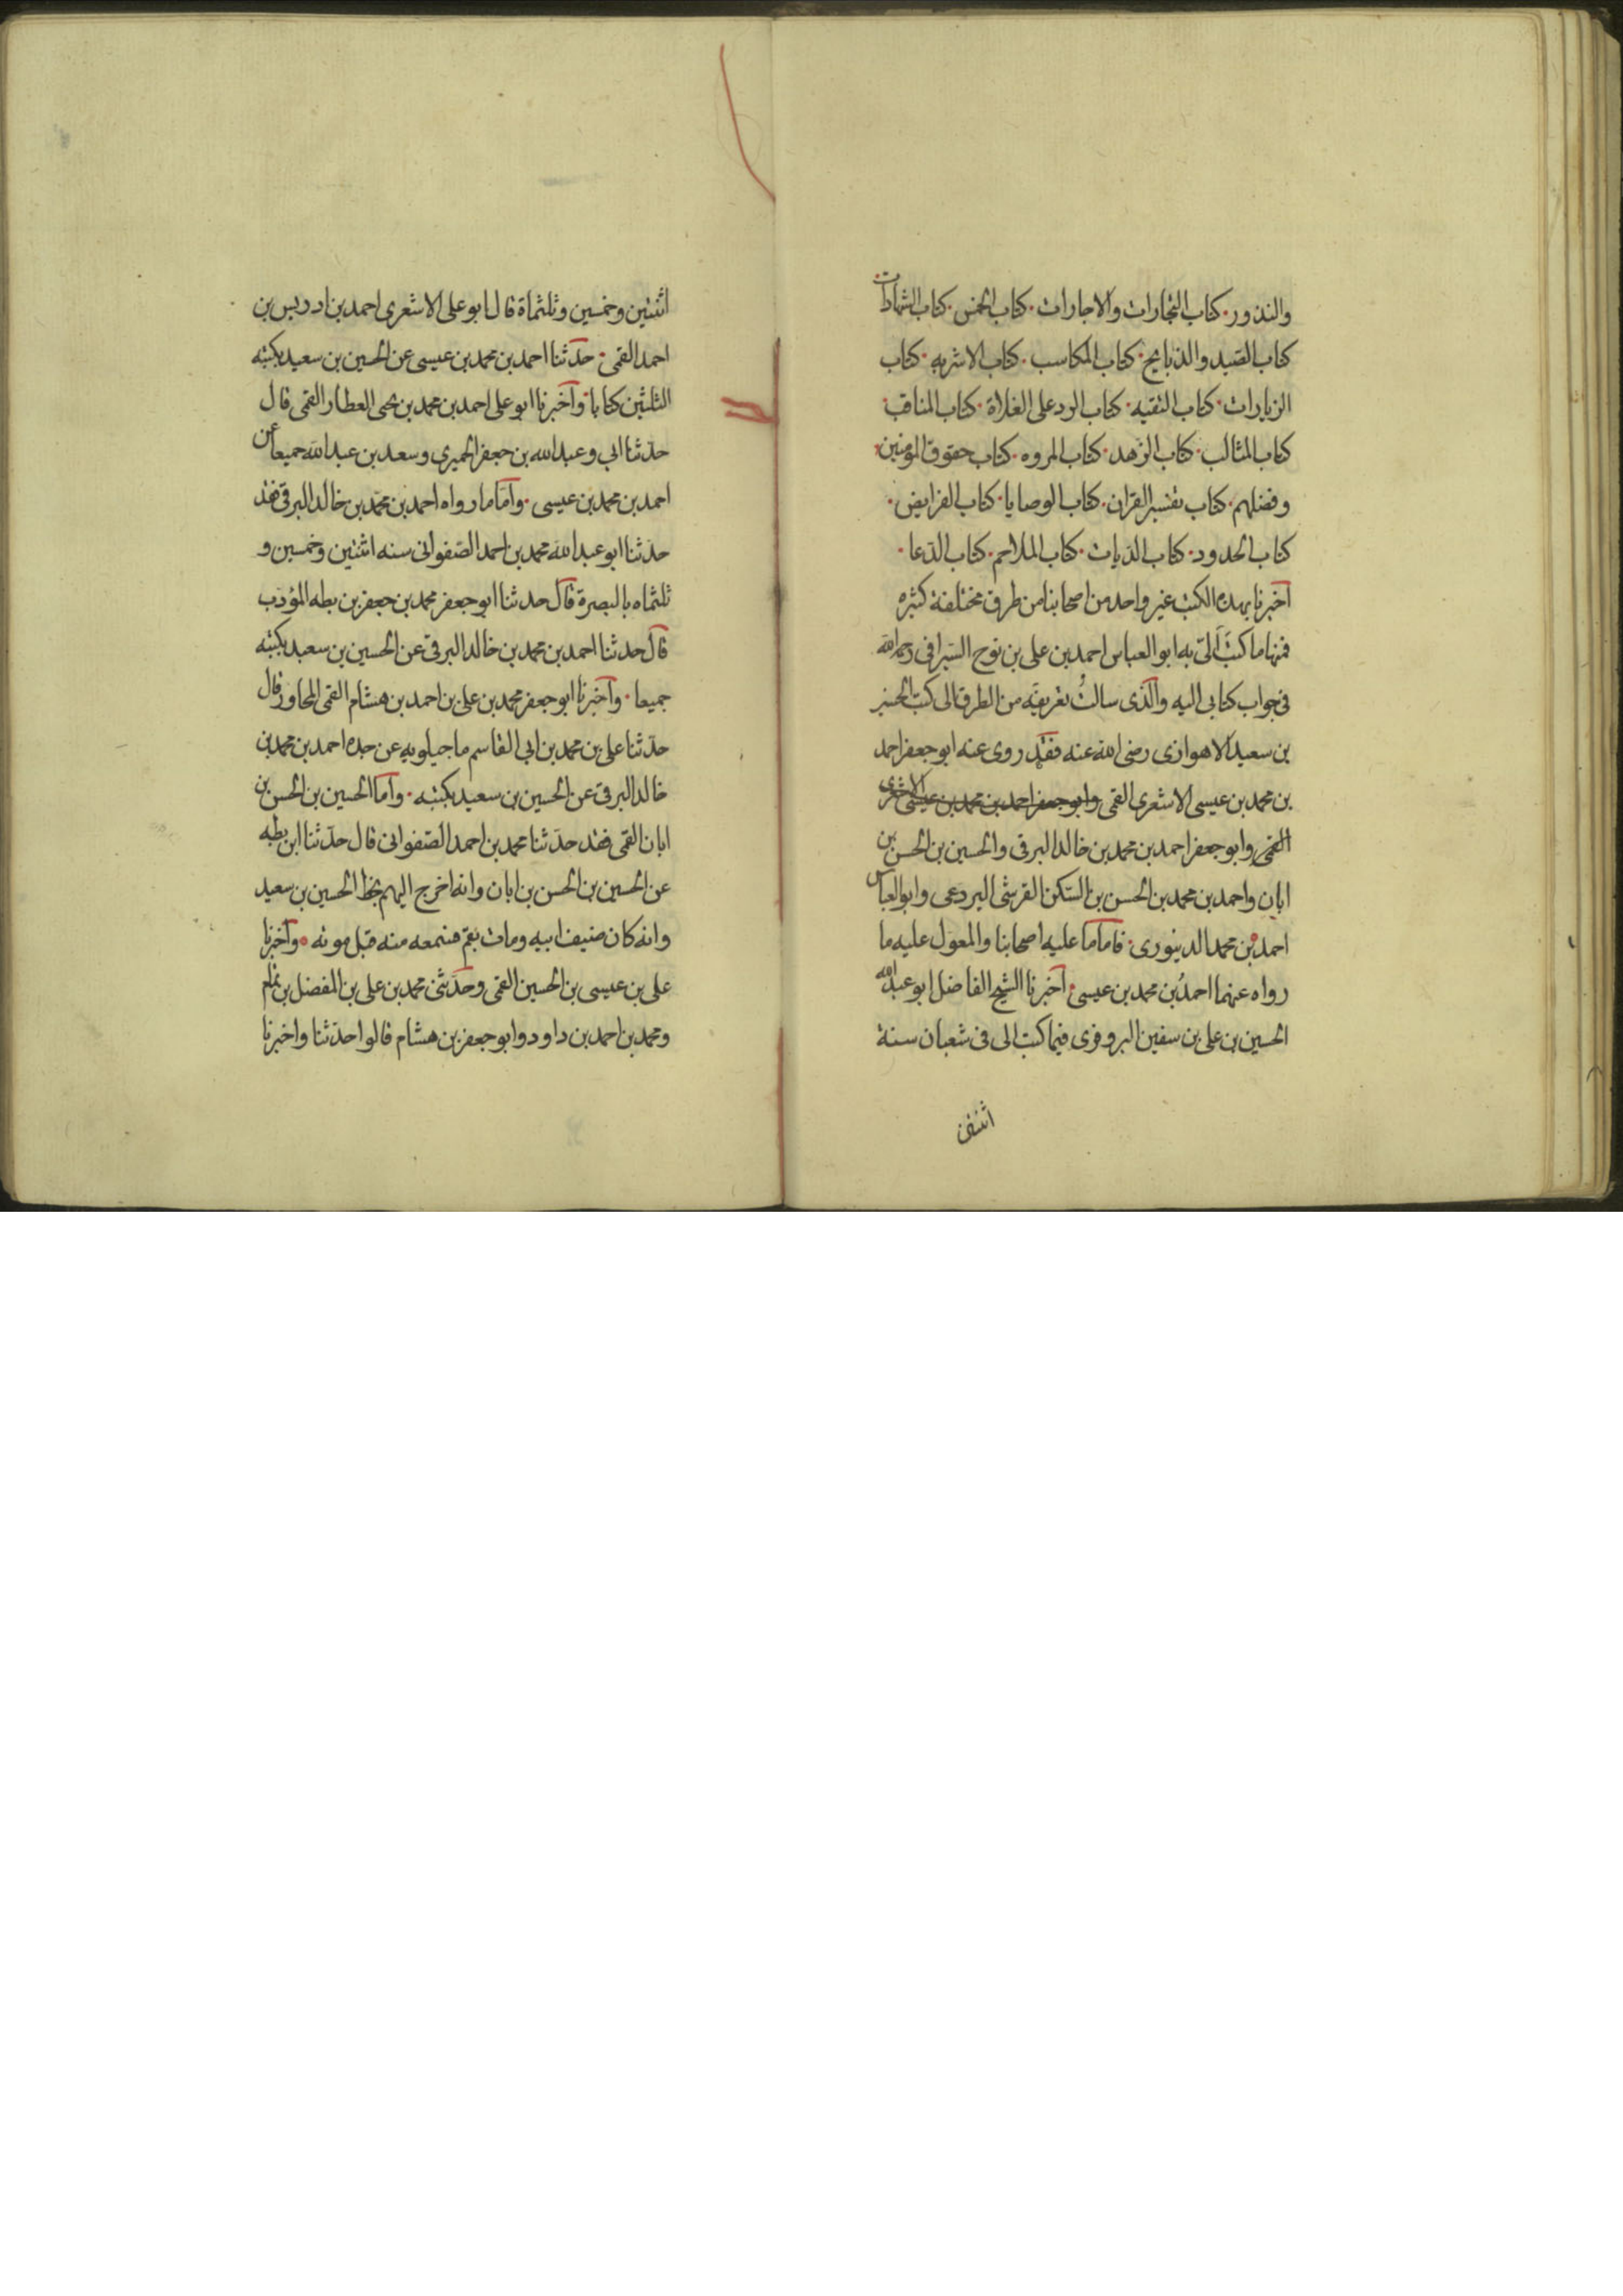 والنذور. كتاب التجارات والاجارات. كتاب الخمس. كتاب الشهادات.
كتاب الصّيد والذبايح. كتاب المكاسب. كتاب الاشربه. كتاب
الزيارات. كتاب التقيه. كتاب الرد على الغلاة. كتاب المناقب.
كتاب المثالب. كتاب الزهد. كتاب المروه. كتاب حقوق المؤمنين.
وفضلهم. كتاب تفسير القران. كتاب الوصايا. كتاب الفرايض.
كتاب الحدود. كتاب الديات. كتاب الملاحم. كتاب الدعا.
اخبرنا بهذه الكتب غير واحد من اصحابنا من طرق مختلفة كثيره
فمنها ما كتب الىّ به ابو العباس احمد بن على بن نوح السيرافى رحمه الله
فى جواب كتابى اليه والّذى سالت تعريفه من الطرق الى كتب الحسين
بن سعيد الاهوازى رضى الله عنه فقد روى عنه ابو جعفر احمد
بن محمد بن عيسى الاشعرى القمى وابو جعفر احمد بن محمد بن عيسى الاشعرى
القمى وابو جعفر احمد بن محمد بن خالد البرقى والحسين بن الحسن بن
ابان واحمد بن محمد بن الحسن بن السّكن القرشى البردعى وابو العباس
احمد بن محمد الدينورى. فاما ما عليه اصحابنا والمعول عليه ما
رواه عنهما احمد بن محمد بن عيسى. اخبرنا الشيخ الفاضل ابو عبد الله
الحسين بن على بن سفين البزوفرى فيما كتب الى فى شعبان سنة
اثنتين
اثنتين وخمسين وثلثماة قال ابو على الاشعرى احمد بن ادريس بن
احمد القمى. حدّثنا احمد بن محمد بن عيسى عن الحسين بن سعيد بكتبه
الثلثين كتابا. واخبرنا ابو على احمد بن محمد بن يحى العطار القمى قال
حدّثنا ابى وعبد الله بن جعفر الحميرى وسعد بن عبد الله جميعا عن
احمد بن محمد بن عيسى. وامّا ما رواه احمد بن محمّد بن خالد البرقى فقد
حدّثنا ابو عبد الله محمد بن احمد الصّفوانى سنه اثنتين وخمسين و
ثلثماه بالبصرة قال حدثنا ابو جعفر محمد بن جعفر بن بطه المؤدّب
قال حدثنا احمد بن محمد بن خالد البرقى عن الحسين بن سعيد بكتبه
جميعا. واخبرنا ابو جعفر محمد بن على بن احمد بن هشام القمى المجاور قال
حدّثنا على بن محمد بن ابى القاسم ماجيلويه عن جده احمد بن محمد بن
خالد البرقى عن الحسين بن سعيد بكتبه. واما الحسين بن الحسن بن
ابان القمى فقد حدّثنا محمد بن احمد الصّفوانى قال حدّثنا ابن بطه
عن الحسين بن الحسن بن ابان وانه اخرج اليهم بخط الحسين بن سعيد
وانه كان ضيف ابيه ومات بقم فسمعه منه قبل موته. واخبرنا
على بن عيسى بن الحسين القمى وحدّثنى محمد بن على بن المفضل بن تمام
ومحمد بن احمد بن داود وابو جعفر بن هشام قالوا حدّثنا واخبرنا